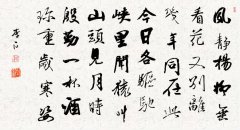 風静楊柳垂
看花又別離
幾年同在此
今日各驅馳
峽里聞猿叫
山頭見月時
殷勤一杯酒
珍重歲寒姿